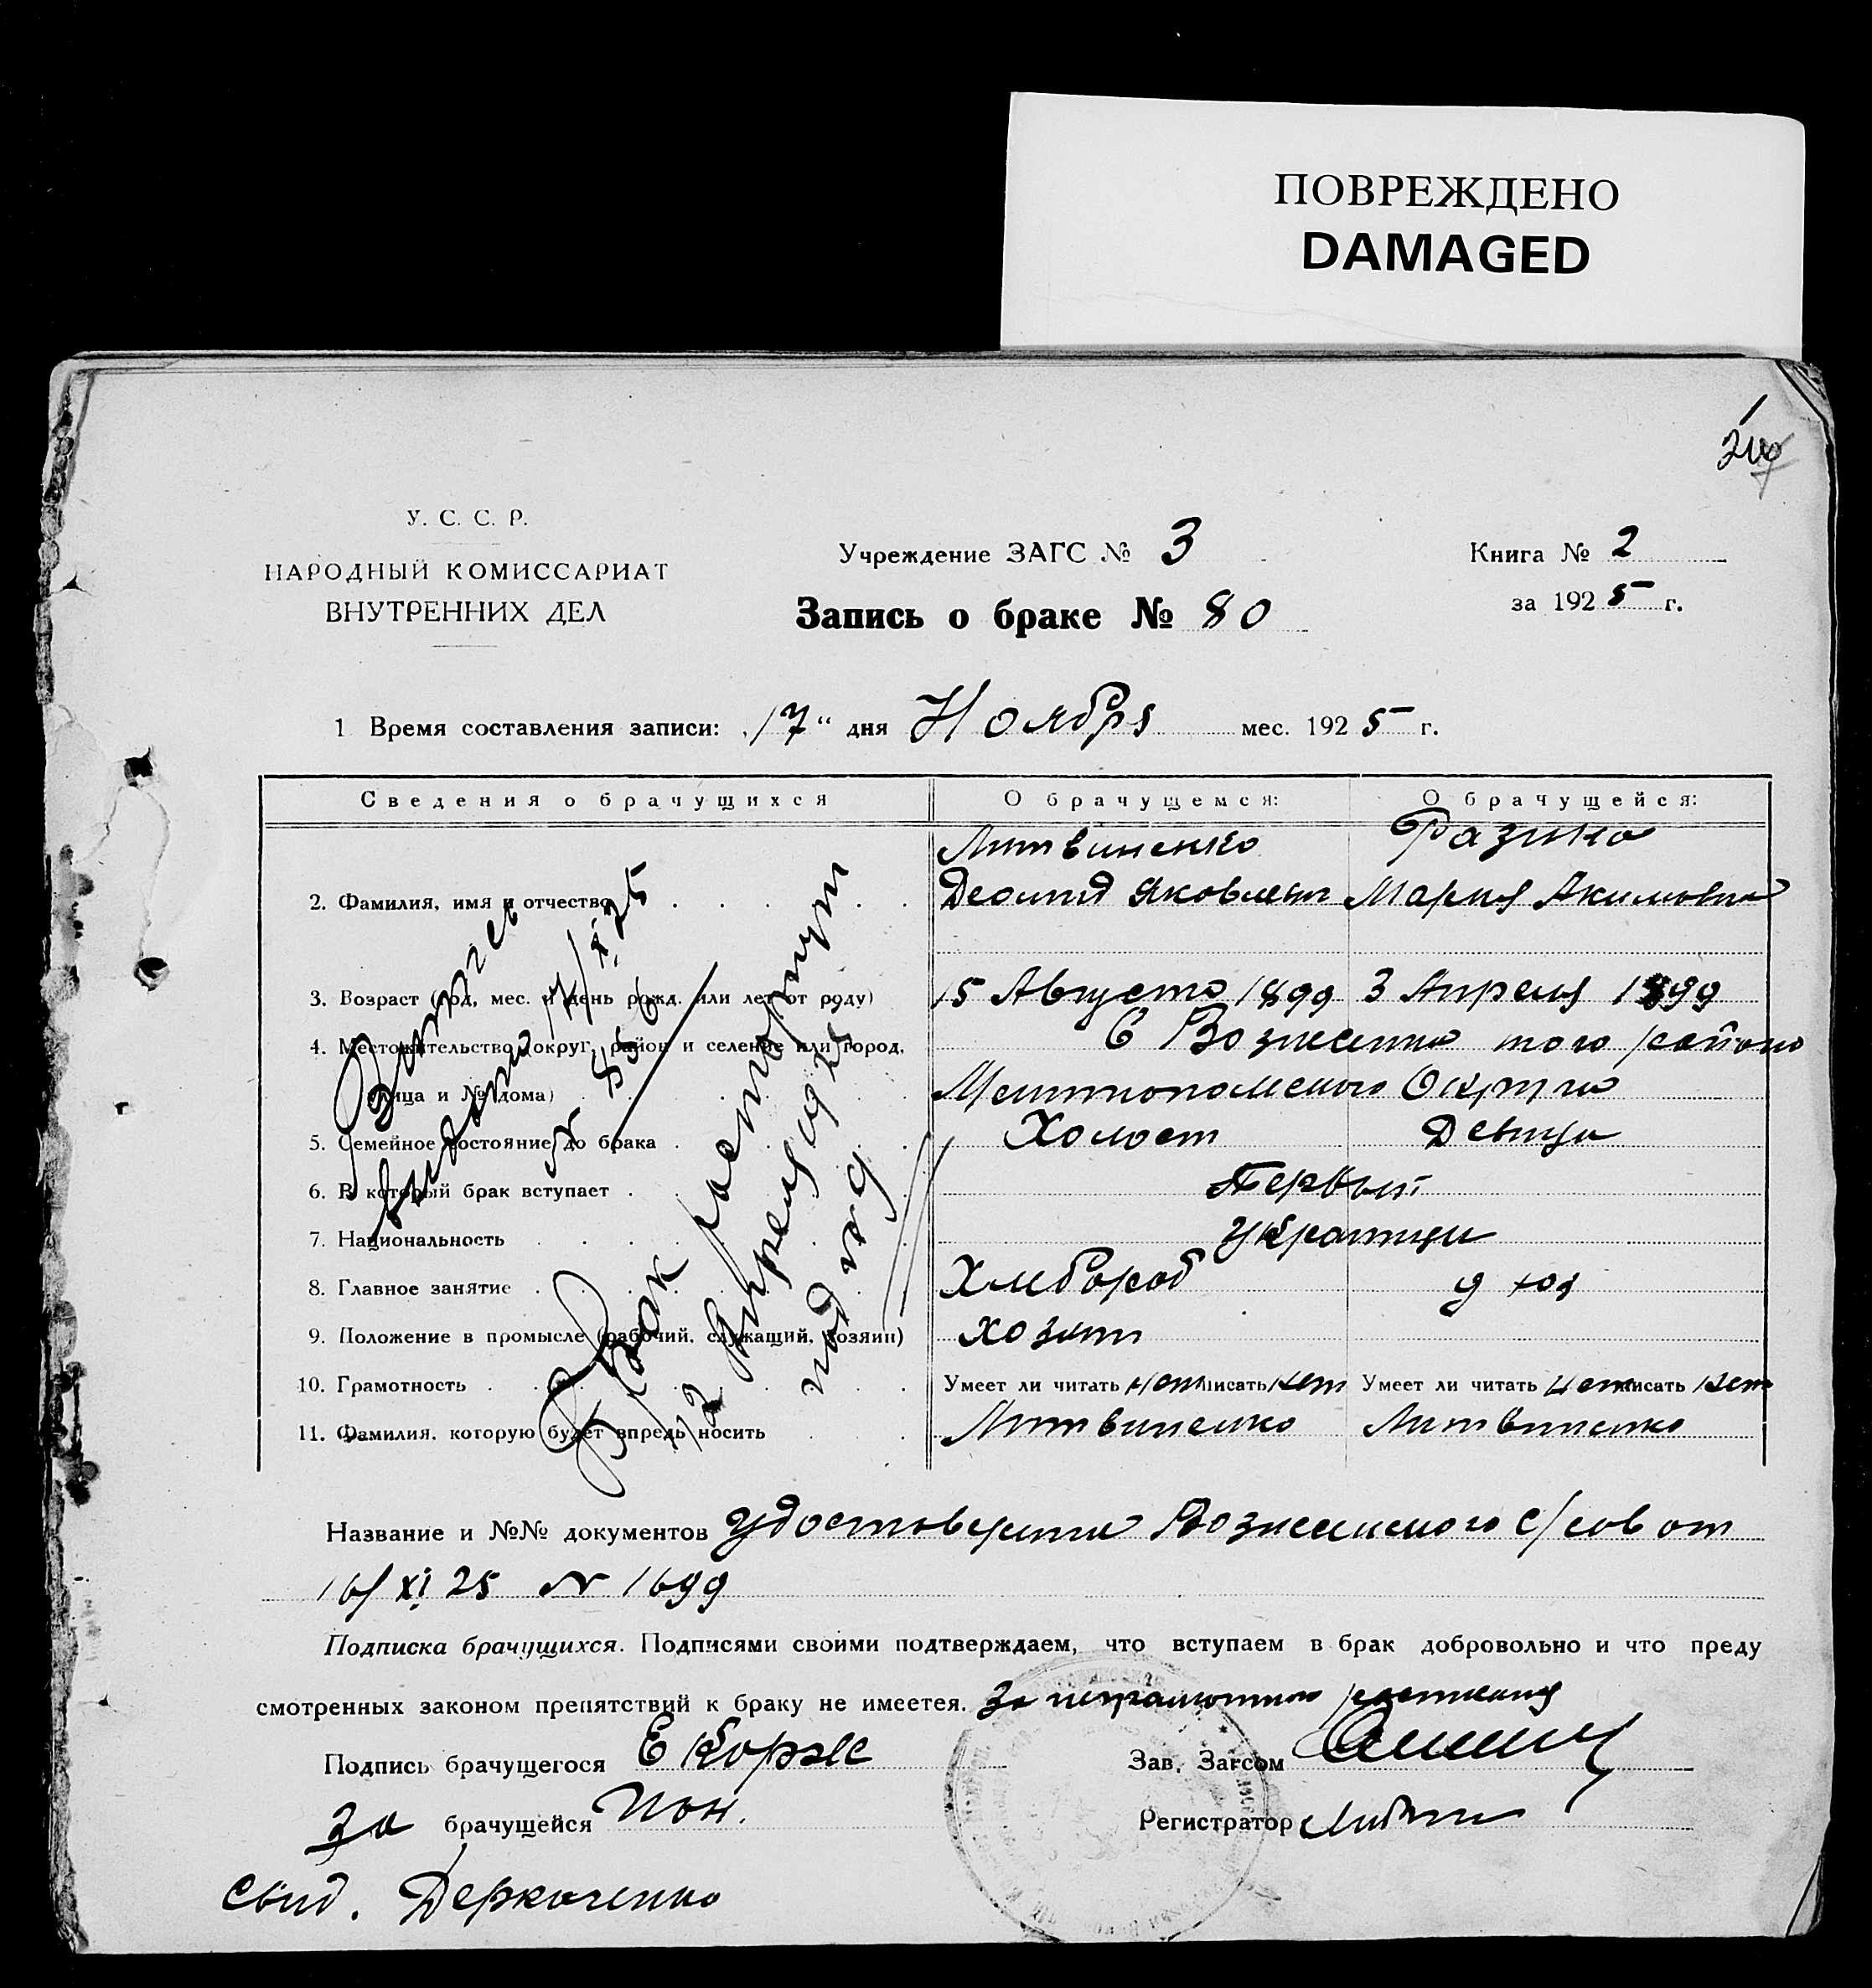 ПОВРЕЖДЕНО
DAMAGED
У. С. С. Р.
НАРОДНЫЙ КОМИССАРИАТ
ВНУТРЕННИХ ДЕЛ
Учреждение ЗАГС № 3
Запись о браке № 80
Книга № 2
за 1925 г.
1 Время составления записи: „17“ дня Ноября мес. 1925 г.
Сведения о брачущихся
О брачущемся:
О брачущейся:
2. Фамилия, имя и отчество
Литвиненко
Яковлевич
Мария Акимовна
3. Возраст (год, мес. и день рожд. или лет от роду)
15 Августа 1899
3 Апреля 1899
4. Местожительство (округ, район и селение или город,
улица и № дома)
С Вознесенка того района
Мелитопольского Округа
5. Семейное состояние до брака
Холост
Девица
6. В который брак вступает
Первый
7. Национальность
Украинцы
8. Главное занятие
Хлебороб
9. Положение в промысле (рабочий, служащий, хозяин)
Хозяин
10. Грамотность
Умеет ли читать Нет писать Нет
Умеет ли читать Нет писать Нет
11. Фамилия, которую будет впредь носить
Литвиненко
Литвиненко
17/XI 25
№ 556
Брак расторгнут
12 Апреля
Название и №№ документов удостоверения Вознесенского с/сов от
16/XI 25 № 1699
Подписка брачущихся. Подписями своими подтверждаем, что вступаем в брак добровольно и что преду
смотренных законом препятствий к браку не имеется. За неграмотных
Подпись брачущегося Е Корж
За брачущейся
Зав. Загсом
Регистратор
Свид. Деркаченко